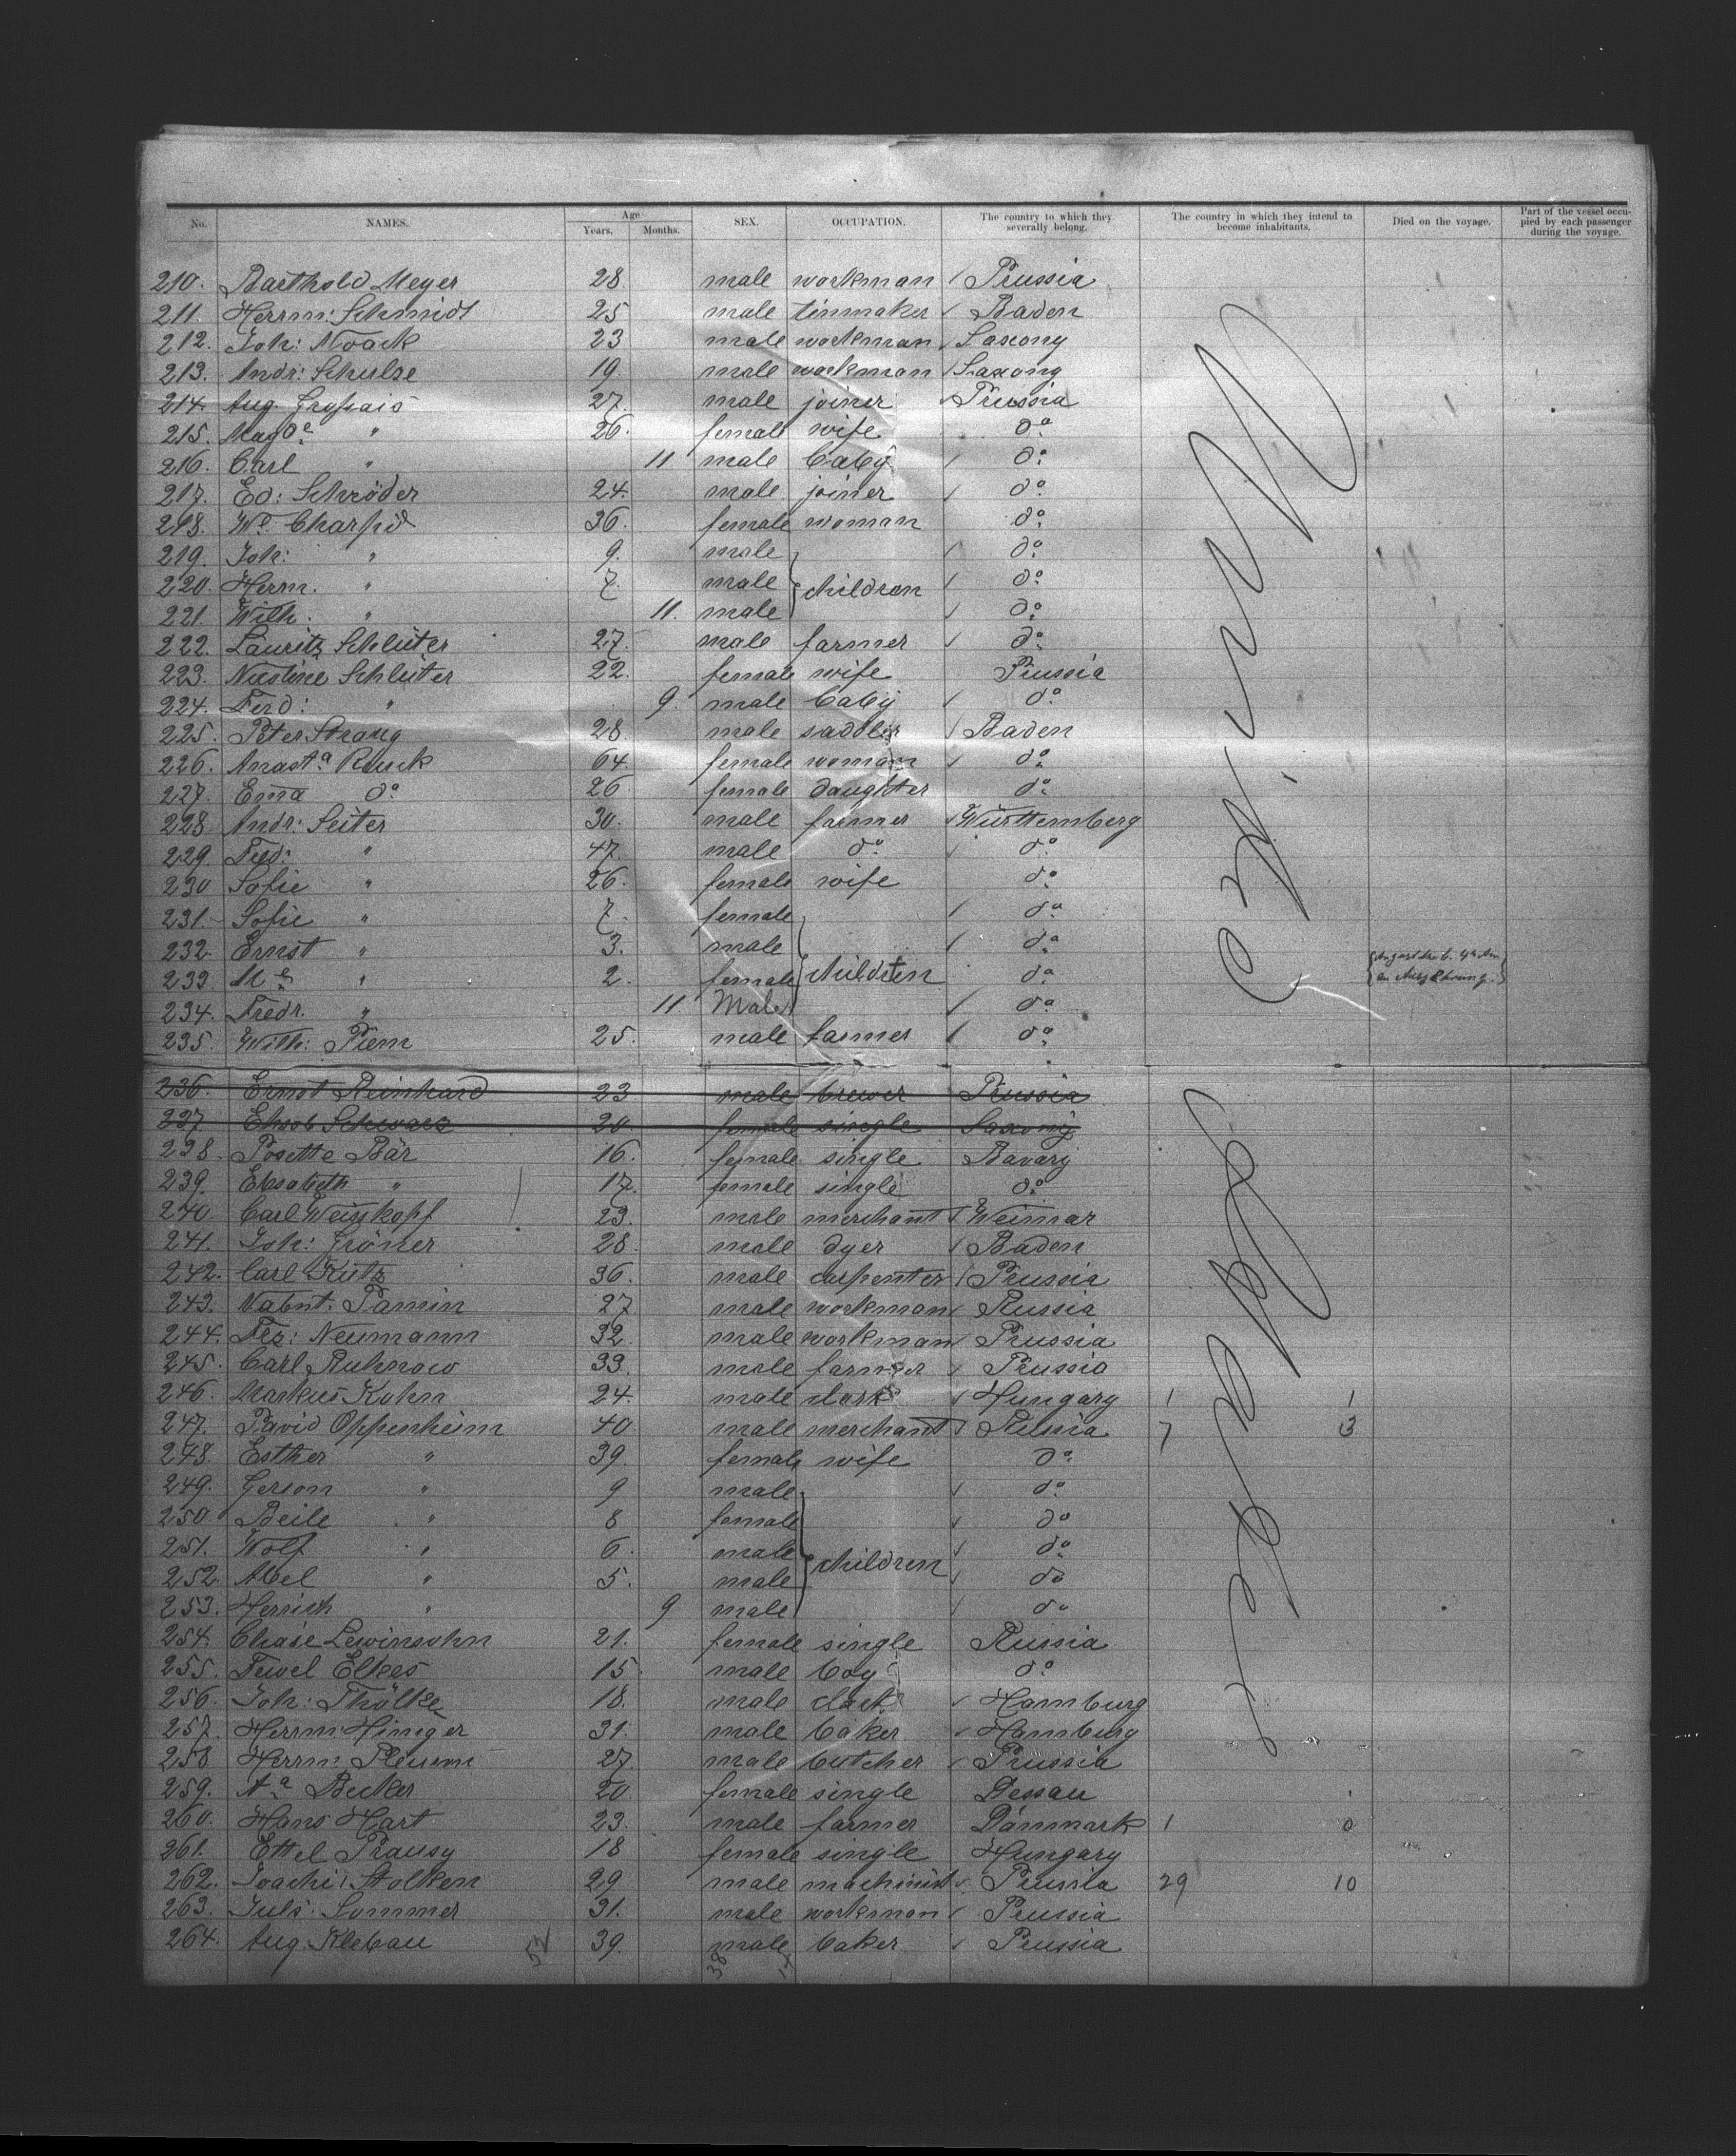 No. NAMES. Age Years. Months. SEX. OCCUPATION. The country to which they severally belong. The country in which they intend to become inhabitants. Died on the voyage. Part of the vessel occupied by each passenger during the voyage.
210. Barthold Meyer 28 male workman Prussia
211. Herrm: Schmidt 25 male tinmaker Baden
212. Joh: Noack 23 male workman Saxony
213. Andr: Schulze 19. male workman Saxony
214. Aug. 27. male joiner Prussia
215. Magde " 26. female wife do.
216. Carl " 11 male baby do.
217. Ed: Schröder 24. male joiner do.
218. We. 36. female woman do.
219. Joh: " 9. male do.
220. Herm. " 7. male children do.
221. Wilh. " 11. male do.
222. Lauritz Schlüter 27. male farmer do.
223. Schlüter 22. female wife Prussia
224. Ferd: " 9. male baby do.
225. Peter Strang 28 male saddler Baden
226. Anasta. Ruck 64. female woman do.
227. Ema do. 26 female daughter do.
228. Andr: Seiter 30. male farmer Württemberg
229. Fred: " 47. male do. do.
230 Sofie " 26. female wife do.
231. Sofie " 7. female do.
232. Ernst " 3. male do.
233. Me. " 2. female children do.
234. Fredr. " 11 Male do.
235. Wilh: Piem 25. male farmer do.
236. Ernst Reinhard 23 male brewer Prussia
237. Schwarz 20. female single Saxony
238. Rosette Bär 16. female single Bavary
239. Elisabeth " 17. female single do.
240. Carl Weisskopf 23. male merchant Weimar
241. Joh: Gröner 28. male dyer Baden
242. Carl Kütz 36. male carpenter Prussia
243. Valent. Pamin 27 male workman Russia
244. Fez: Neumann 32. male workman Prussia
245. Carl Ruhnow 33. male farmer Prussia
246. Markus Kohn 24. male clark Hungary 1 1
247. David Oppenheim 40. male merchant Russia 7 3
248. Esther " 39. female wife do.
249. Gerson " 9 male do.
250. Beile " 8 female do
251. Wolf " 6. male do.
252. Abel " 5. male children do
253. Herrich " 9 male do
254. Chaie Lewinsohn 21. female single Russia
255. Fewel Elkes 15. male boy do.
256. Joh: Thölke 18. male clark Hamburg
257. Herrm: Himger 31. male baker Hamburg
258 Herrm: Pleum 27. male butcher Prussia
259. Aa. Becker 20. female single Dessau
260. Hans Hart 23. male farmer Dänmark 1 0
261. Ettel Prausy 18 female single Hungary
262. Joachi: Stolken 29 male machinist Prussia 29 10
263. Juls. Sommer 31. male workman Prussia
264. Aug. Klebau 39. male baker Prussia
52 38